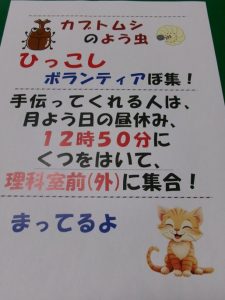 カブトムシ
のよう虫
ひっこし
ボランティアぼ集！
手伝ってくれる人は、
月よう日の昼休み、
１２時５０分に
くつをはいて、
理科室前(外)に集合！
まってるよ